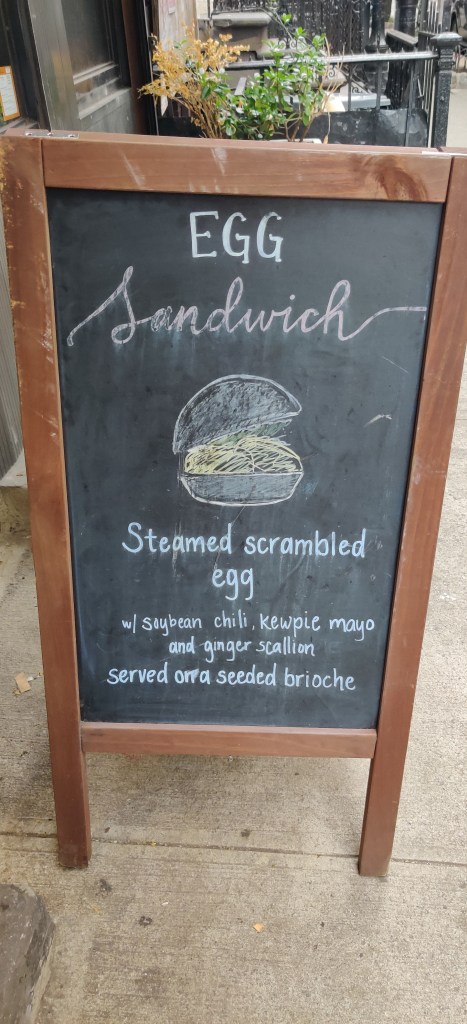 EGG
Sandwich
Steamed scrambled
egg
w/ soybean chili, kewpie mayo
and ginger scallion
served on a seeded brioche